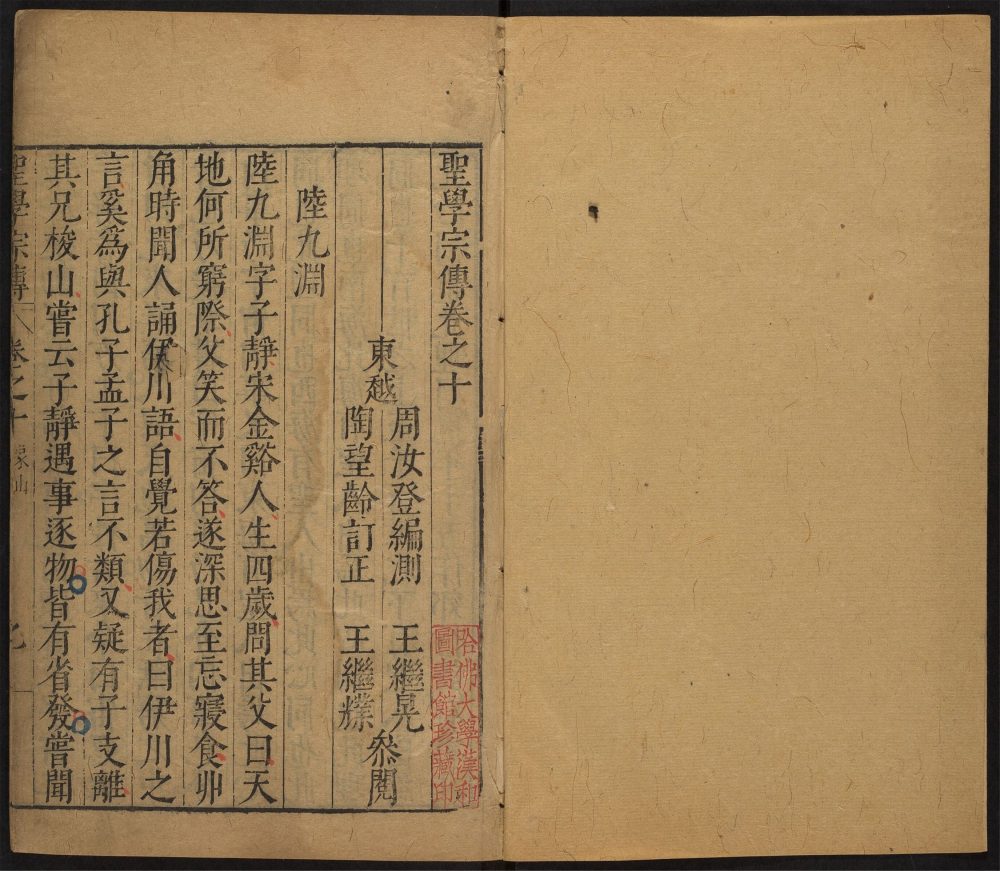 聖學宗傳卷之十
東越
周汝登編測 王繼晃
陶望齡訂正 王繼爃
叅閱
陸九淵
陸九淵字子靜宋金谿人生四歲問其父曰天
地何所窮際父笑而不答遂深思至忘寢食丱
角時聞人誦伊川語自覺若傷我者曰伊川之
言奚為與孔子孟子之言不類又疑有子支離
其兄梭山嘗云子靜遇事逐物皆有省發嘗聞
聖學宗傳 卷之十 象山
哈佛大學漢和
圖書館珍藏印